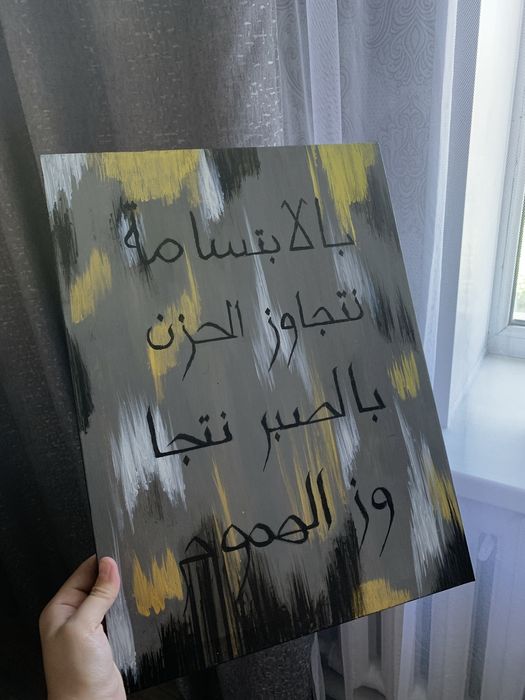 بالابتسامة
نتجاوز الحزن
بالصبر نتجا
وز الهموم